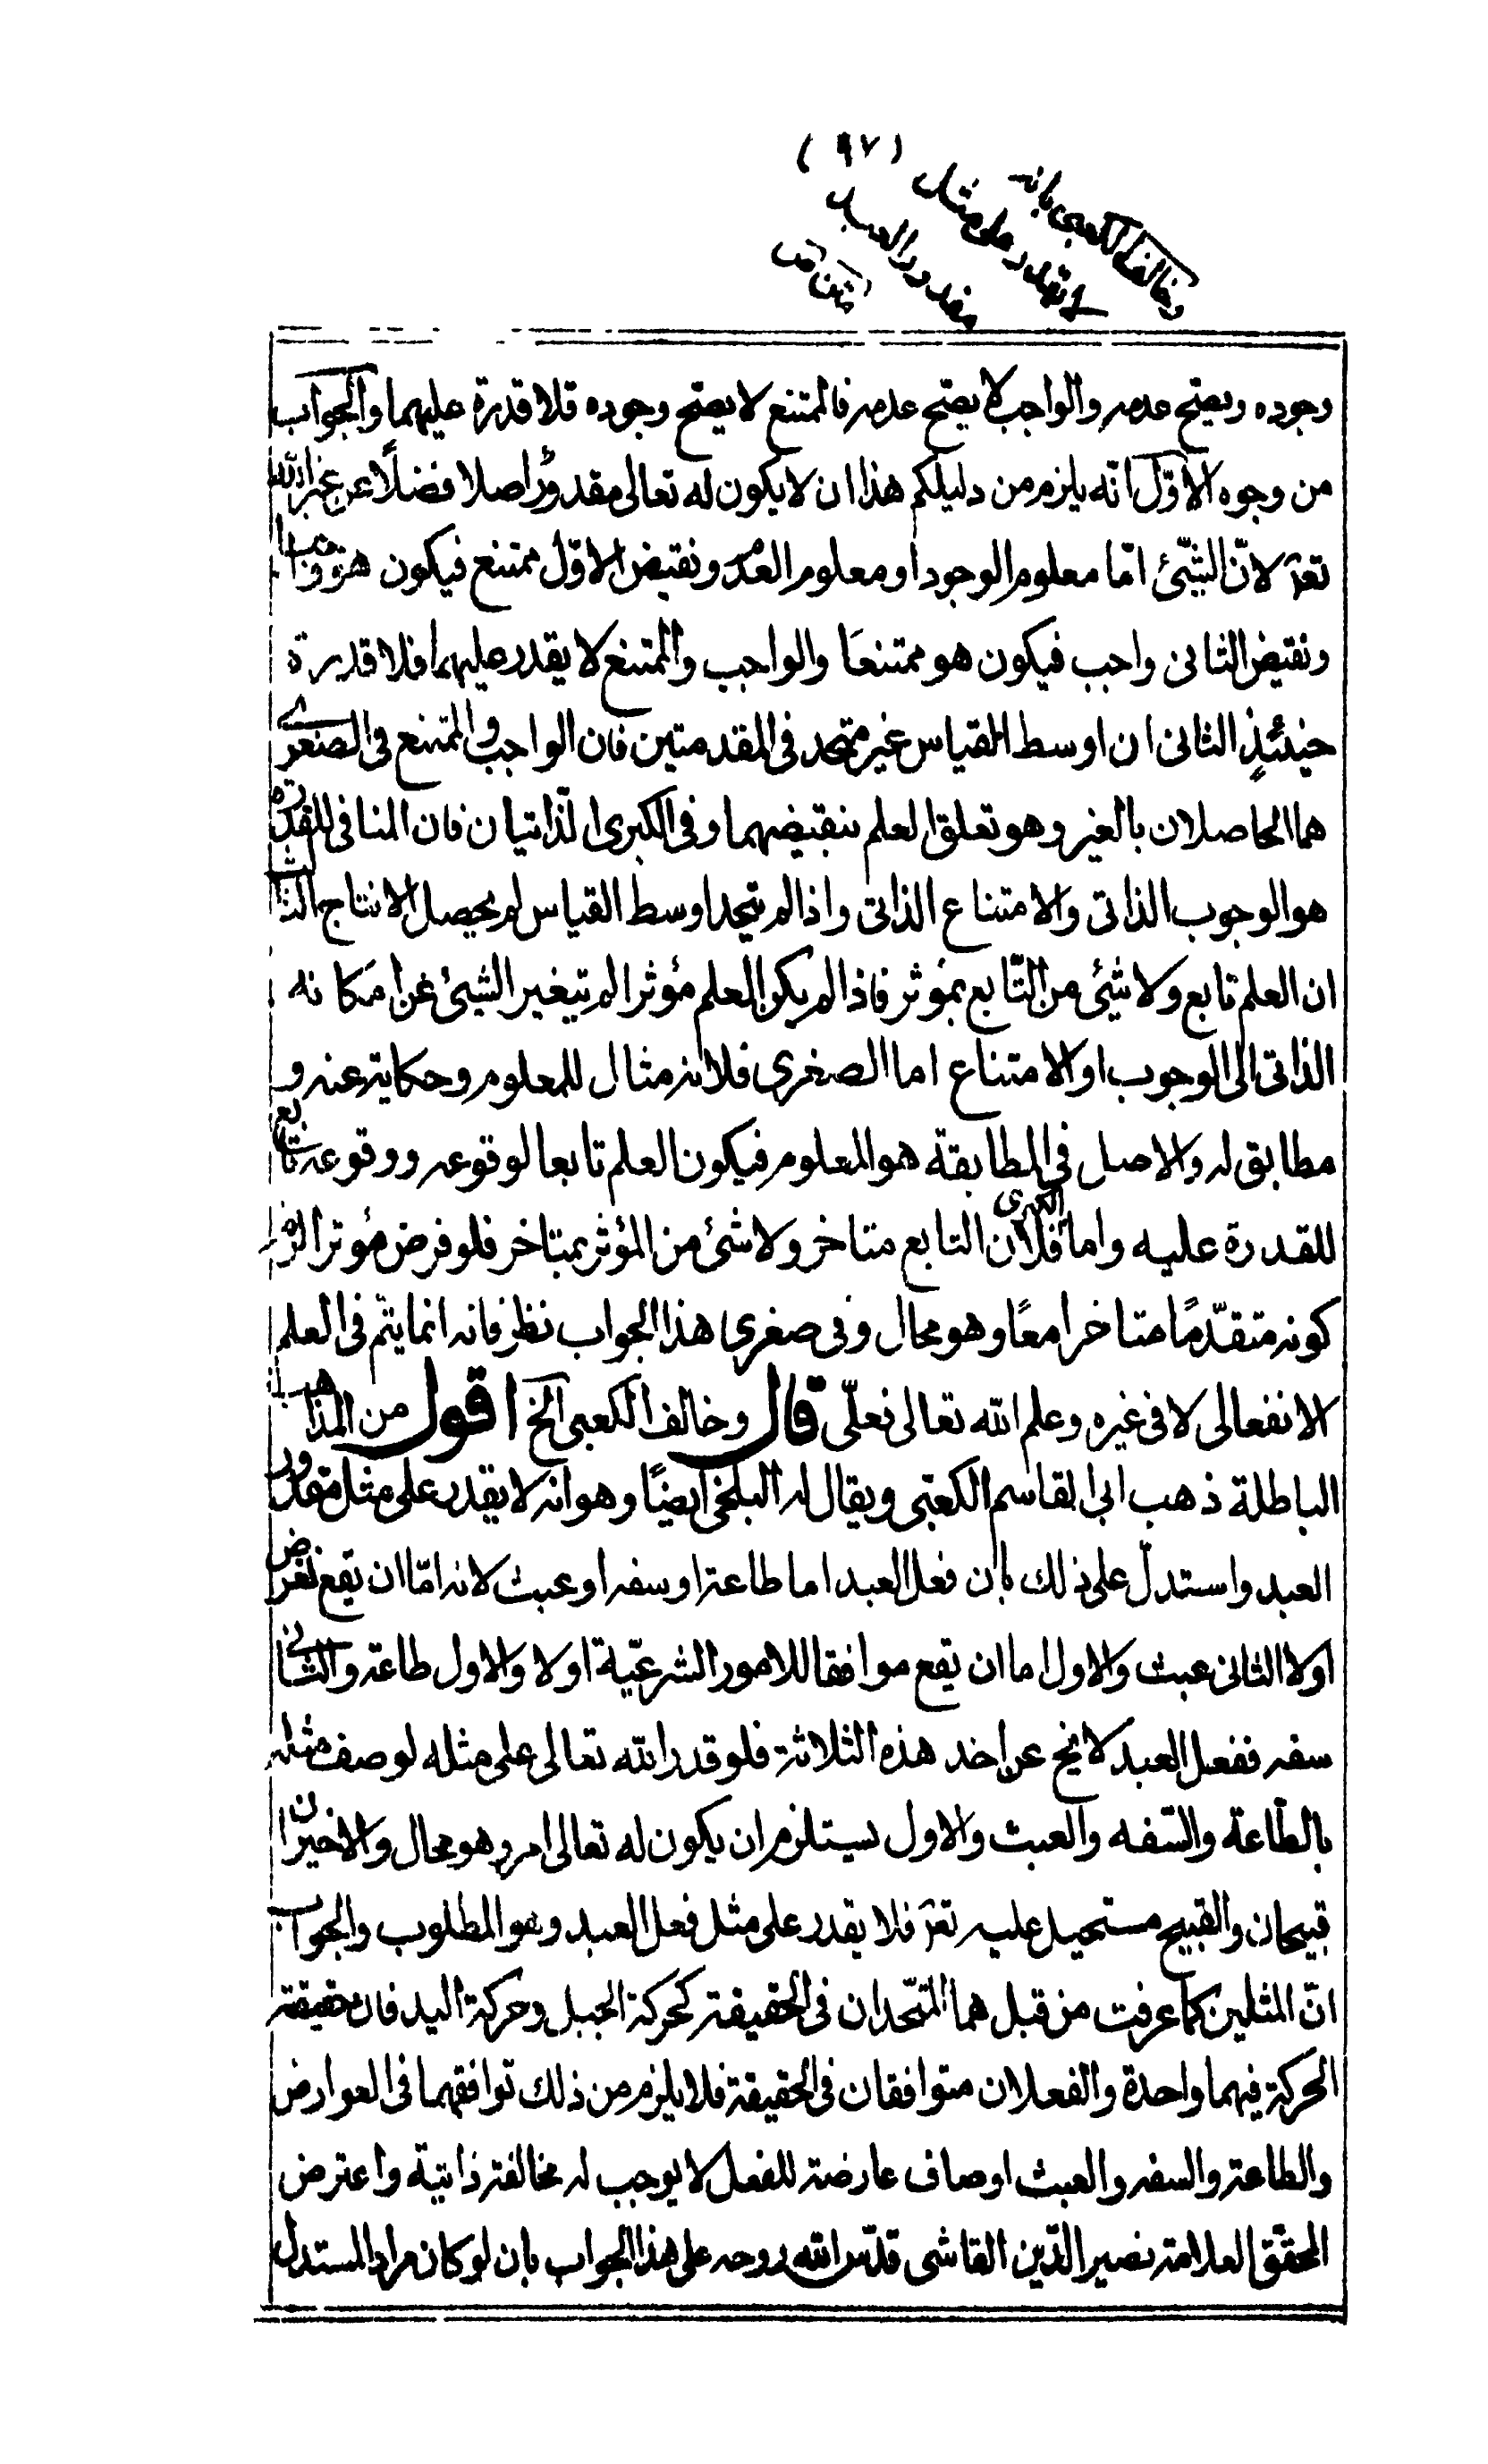 (٩٧)
وخالف الكعبى بانه
لا يقدر على مثل
مقدور العبد
وجوده ويصّح عدمه والواجب لا يصّح عدمه فالممتنع لا يصّح وجوده قلا قدرة عليهما والجواب
من وجوه الاوّل انّه يلزم من دليلكم هذا ان لا يكون له تعالى مقدورًا اصلا فضلًا عن
تعۤ لانّ الشّيئ امّا معلوم الوجود او معلوم العدم ونقيض الاوّل ممتنع فيكون هو واجبا
ونقيض الثانى واجب فيكون هو ممتنعًا والواجب والممتنع لا يقدر عليهما فلا قدرة
حينئذٍ الثانى ان اوسط القياس غير متحد فى المقدمتين فان الواجب والممتنع فى الصغرى
هما الحاصلان بالغير وهو تعلق العلم بنقيضهما وفى الكبرى الذّاتيان فان المنافى للقدرة
هو الوجوب الذاتى والامتناع الذاتى واذا لم يتحد اوسط القياس لم يحصل الانتاج الثالث
ان العلم تابع ولا شيئ من التّابع بمؤثر فاذا لم يكن العلم مؤثرا لم يتغير الشيئ عن امكانه
الذاتى الى الوجوب او الامتناع اما الصغرى فلانه مثال للمعلوم وحكاية عنه و
مطابق له والاصل فى المطابقة هو المعلوم فيكون العلم تابعا لوقوعه ووقوعه تابع
للقدرة عليه واما الكبرى فلان التابع متاخر ولا شئ من المؤثر بمتاخر فلو فرض مؤثرا لزم
كونه متقدّمًا متاخرا معًا وهو محال وفى صغرى هذا الجواب نظر فانه انما يتّم فى العلم
الانفعالى لا فى غيره وعلم الله تعالى فعلّى قال وخالف الكعبى الخ اقول من المذاهب
الباطلة ذهب ابى القاسم الكعبّى ويقال له البلخى ايضًا وهو انه لا يقدر على مثل مقدور
العبد واستدلّ على ذلك بان فعل العبد اما طاعة او سفه او عبث لانه امّا ان يقع لغرض
اولا الثانى عبث والاول اما ان يقع موافقا للامور الشرعيّة اولا والاول طاعة والثانى
سفه ففعل العبد لا يخ عن احد هذه الثلاثة فلو قدر الله تعالى على مثله لوصف مثله
بالطّاعة والسّفه والعبث والاول يستلزم ان يكون له تعالى امر وهو محال والاخيران
قبيحان والقبيح مستحيل عليه تعۤ فلا يقدر على مثل فعل العبد وهو المطلوب والجواب
انّ المثلين كما عرفت من قبل هما المتّحدان فى الحقيقة كحركة الجبل وحركة اليد فان حقيقة
الحركة فيهما واحدة والفعلان متوافقان فى الحقيقة فلا يلزم من ذلك توافقهما فى العوارض
والطاعة والسفه والعبث اوصاف عارضة للفعل لا يوجب له مخالفة ذاتية واعترض
المحقّق العلامة نصير الدّين القاشى قدّس الله روحه على هذا الجواب بان لو كان مراد المستدل